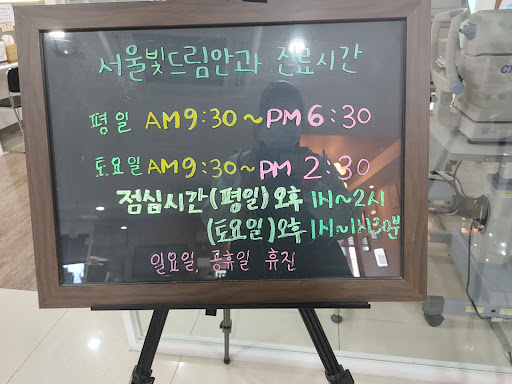 서울빛드림안과 진료시간
평일 AM 9:30~PM 6:30
토요일 AM 9:30~PM 2:30
점심시간(평일)오후 1시~2시
(토요일)오후 1시~1시30분
일요일, 공휴일 휴진